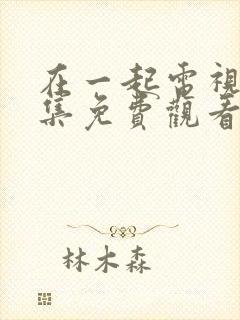 在一起電視
集免費觀看
林木森